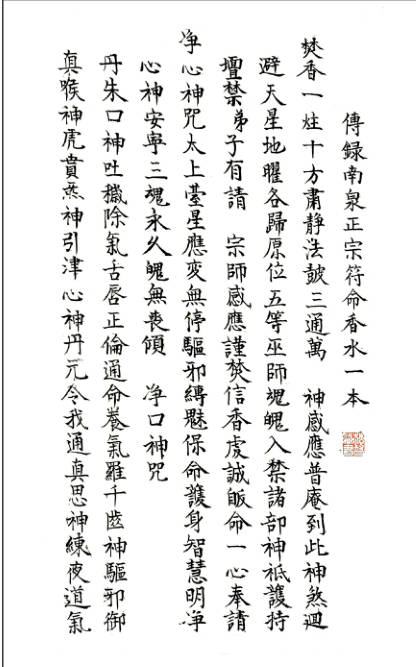 傳録南泉正宗符命香水一本
焚香一炷十方肅靜法皷三通萬 神感應普庵到此神煞迴
避天星地曜各歸原位五等巫師魂魄入禁諸部神祇護持
壇禁弟子有請 宗師感應謹焚信香虔誠皈命一心奉請
净心神咒太上臺星應变無停驅邪縛魅保命護身智慧明净
心神安寧三魂永久魄無喪傾 净口神咒
丹朱口神吐穢除氣舌唇正倫通命養氣羅千齒神驅邪御
真喉神虎賁炁神引津心神丹元令我通真思神練夜道氣